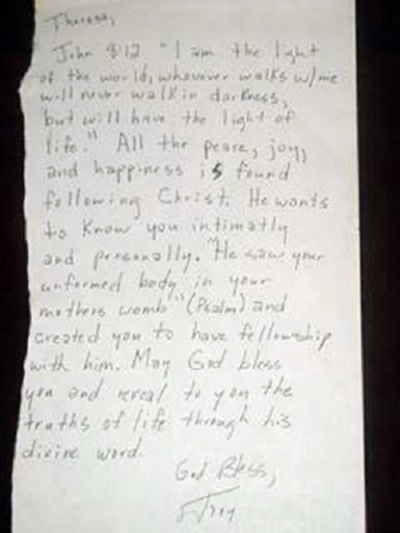 Theresa,
John 8:12 "I am the light
of the world, whoever walks w/me
will never walk in darkness,
but will have the light of
life." All the peace, joy,
and happiness is found
following Christ. He wants
to know you intimatly
and personally. "He saw your
unformed body in your
mothers womb" (Psalm) and
created you to have fellowship
with him. May God bless
you and reveal to you the
truths of life through his
divine word.
God Bless,
Troy